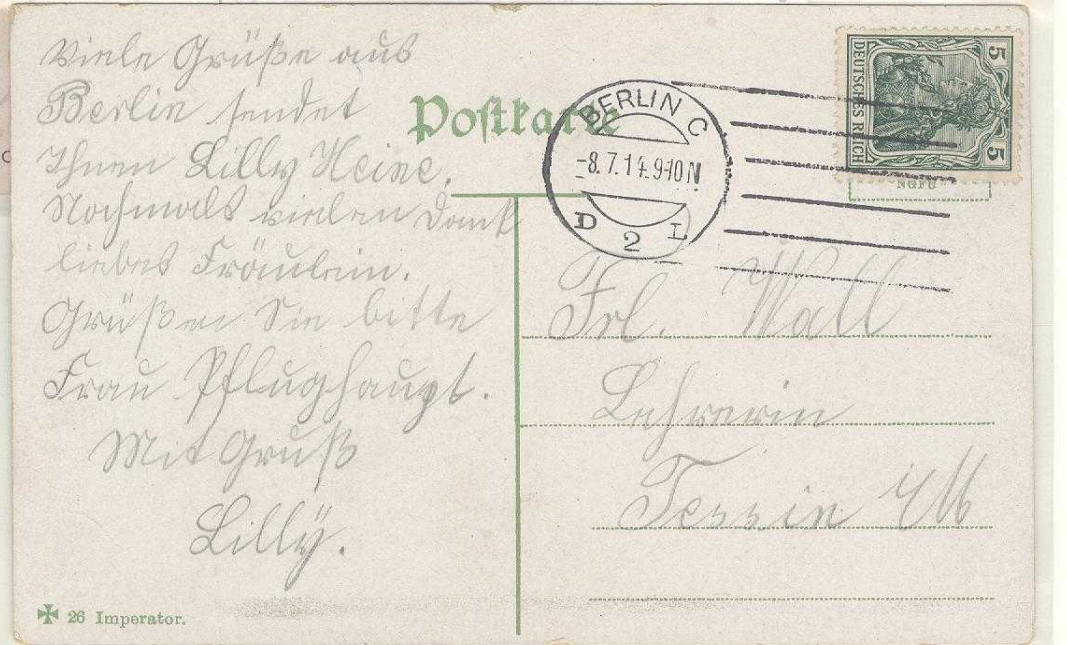 Viele Grüße aus
Berlin sendet
Ihnen Lilly Heine.
Nochmals vielen Dank
liebes Fräulein.
Grüßen Sie bitte
Frau Pflughaupt.
Mit Gruß
Lilly.
26 Imperator.
Postkarte
BERLIN C
-8.7.14.9-10N
D 2 L
5
DEUTSCHES REICH
5
Frl. Wall
Lehrerin
Tessin i/M